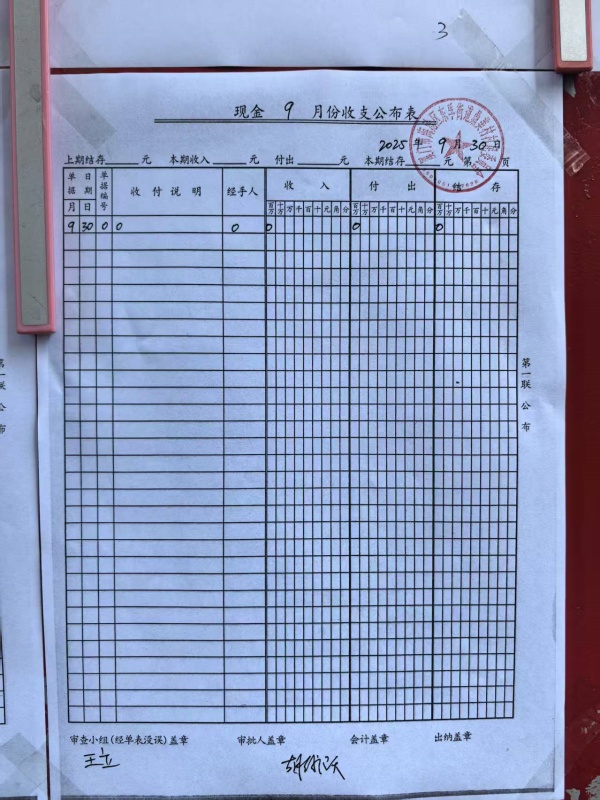 3
现金 9 月份收支公布表
2025 年 9 月 30 日
上期结存 元 本期收入 元 付出 元 本期结存 元 第 页
单据 日期 单据编号 收付说明 经手人 收入 付出 结存
月 日 百万 十万 万 千 百 十 元 角 分 百万 十万 万 千 百 十 元 角 分 百万 十万 万 千 百 十 元 角 分
9 30 0 0 0 0 0 0
第一联 公布
第一联 公布
审查小组(经单表没误)盖章 审批人盖章 会计盖章 出纳盖章
王立